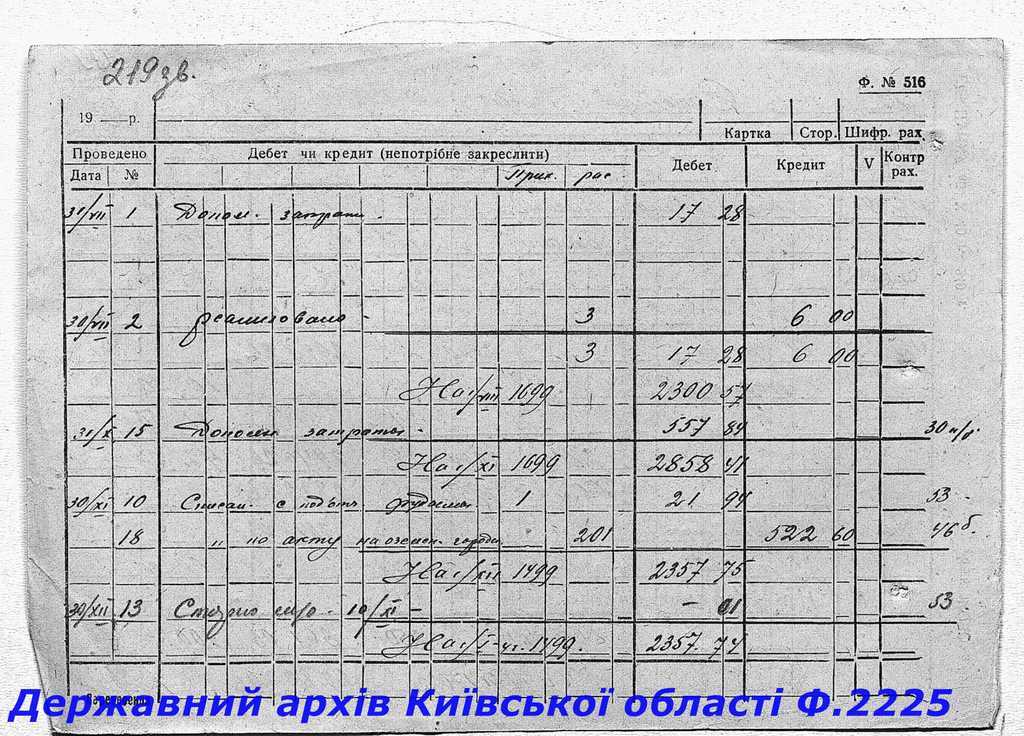 219 зв.
Ф. № 516
19 р.
Картка Стор. Шифр. рах.
Проведено Дебет чи кредит (непотрібне закреслити) Дебет Кредит V Контр рах.
Дата № Прих. рас.
31/VII 1 Допол. затраты - 17 28
30/VII 2 реализовано - 3 6 00
3 17 28 6 00
На 1/VIII 1699 2300 57
31/X 15 затраты - 557 84
На 1/XI 1699 2858 41
30/XI 10 Списан. с 1 21 94 53
18 " по акту на озелен. города 201 522 60 46б.
На 1/XII 1499 2357 75
30/XII 13 10/XI - - 01 53
На 1/I 1499. 2357. 74
Державний архів Київської області Ф.2225